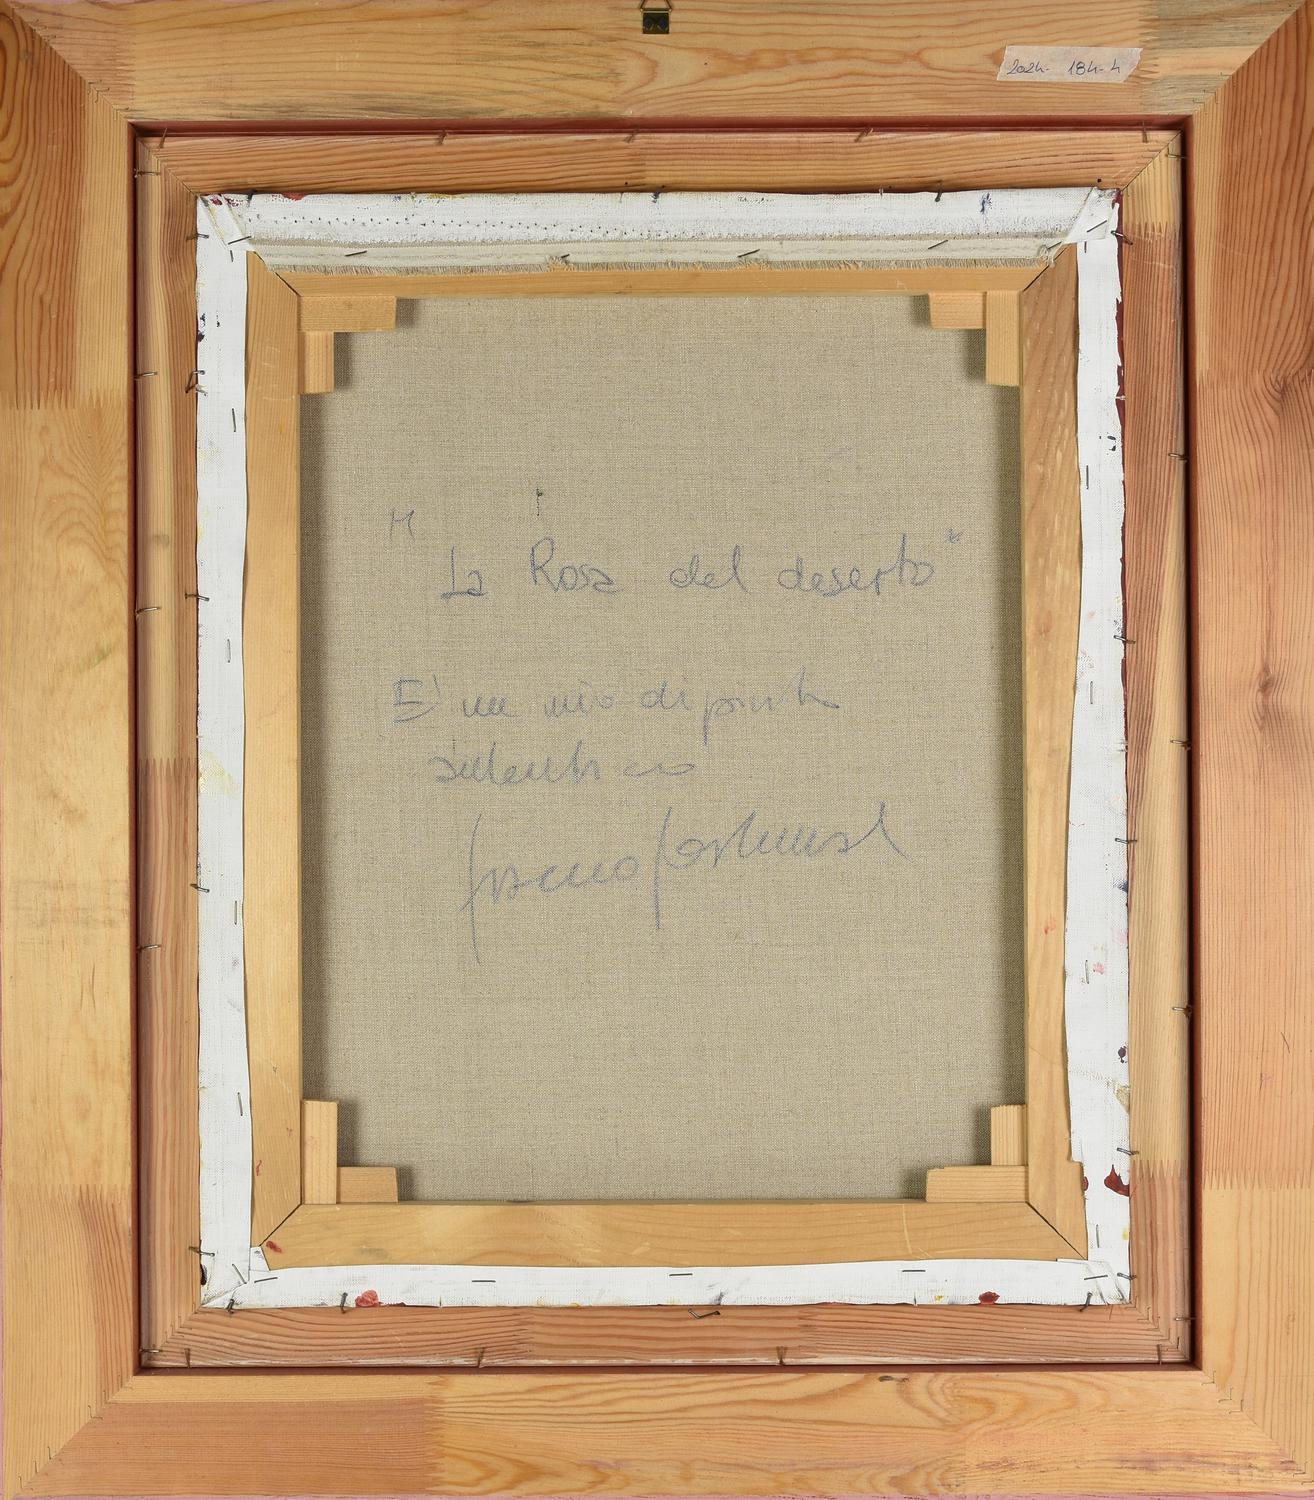 2024- 184-4
"La Rosa del deserto"
E' un mio dipinto
autentico